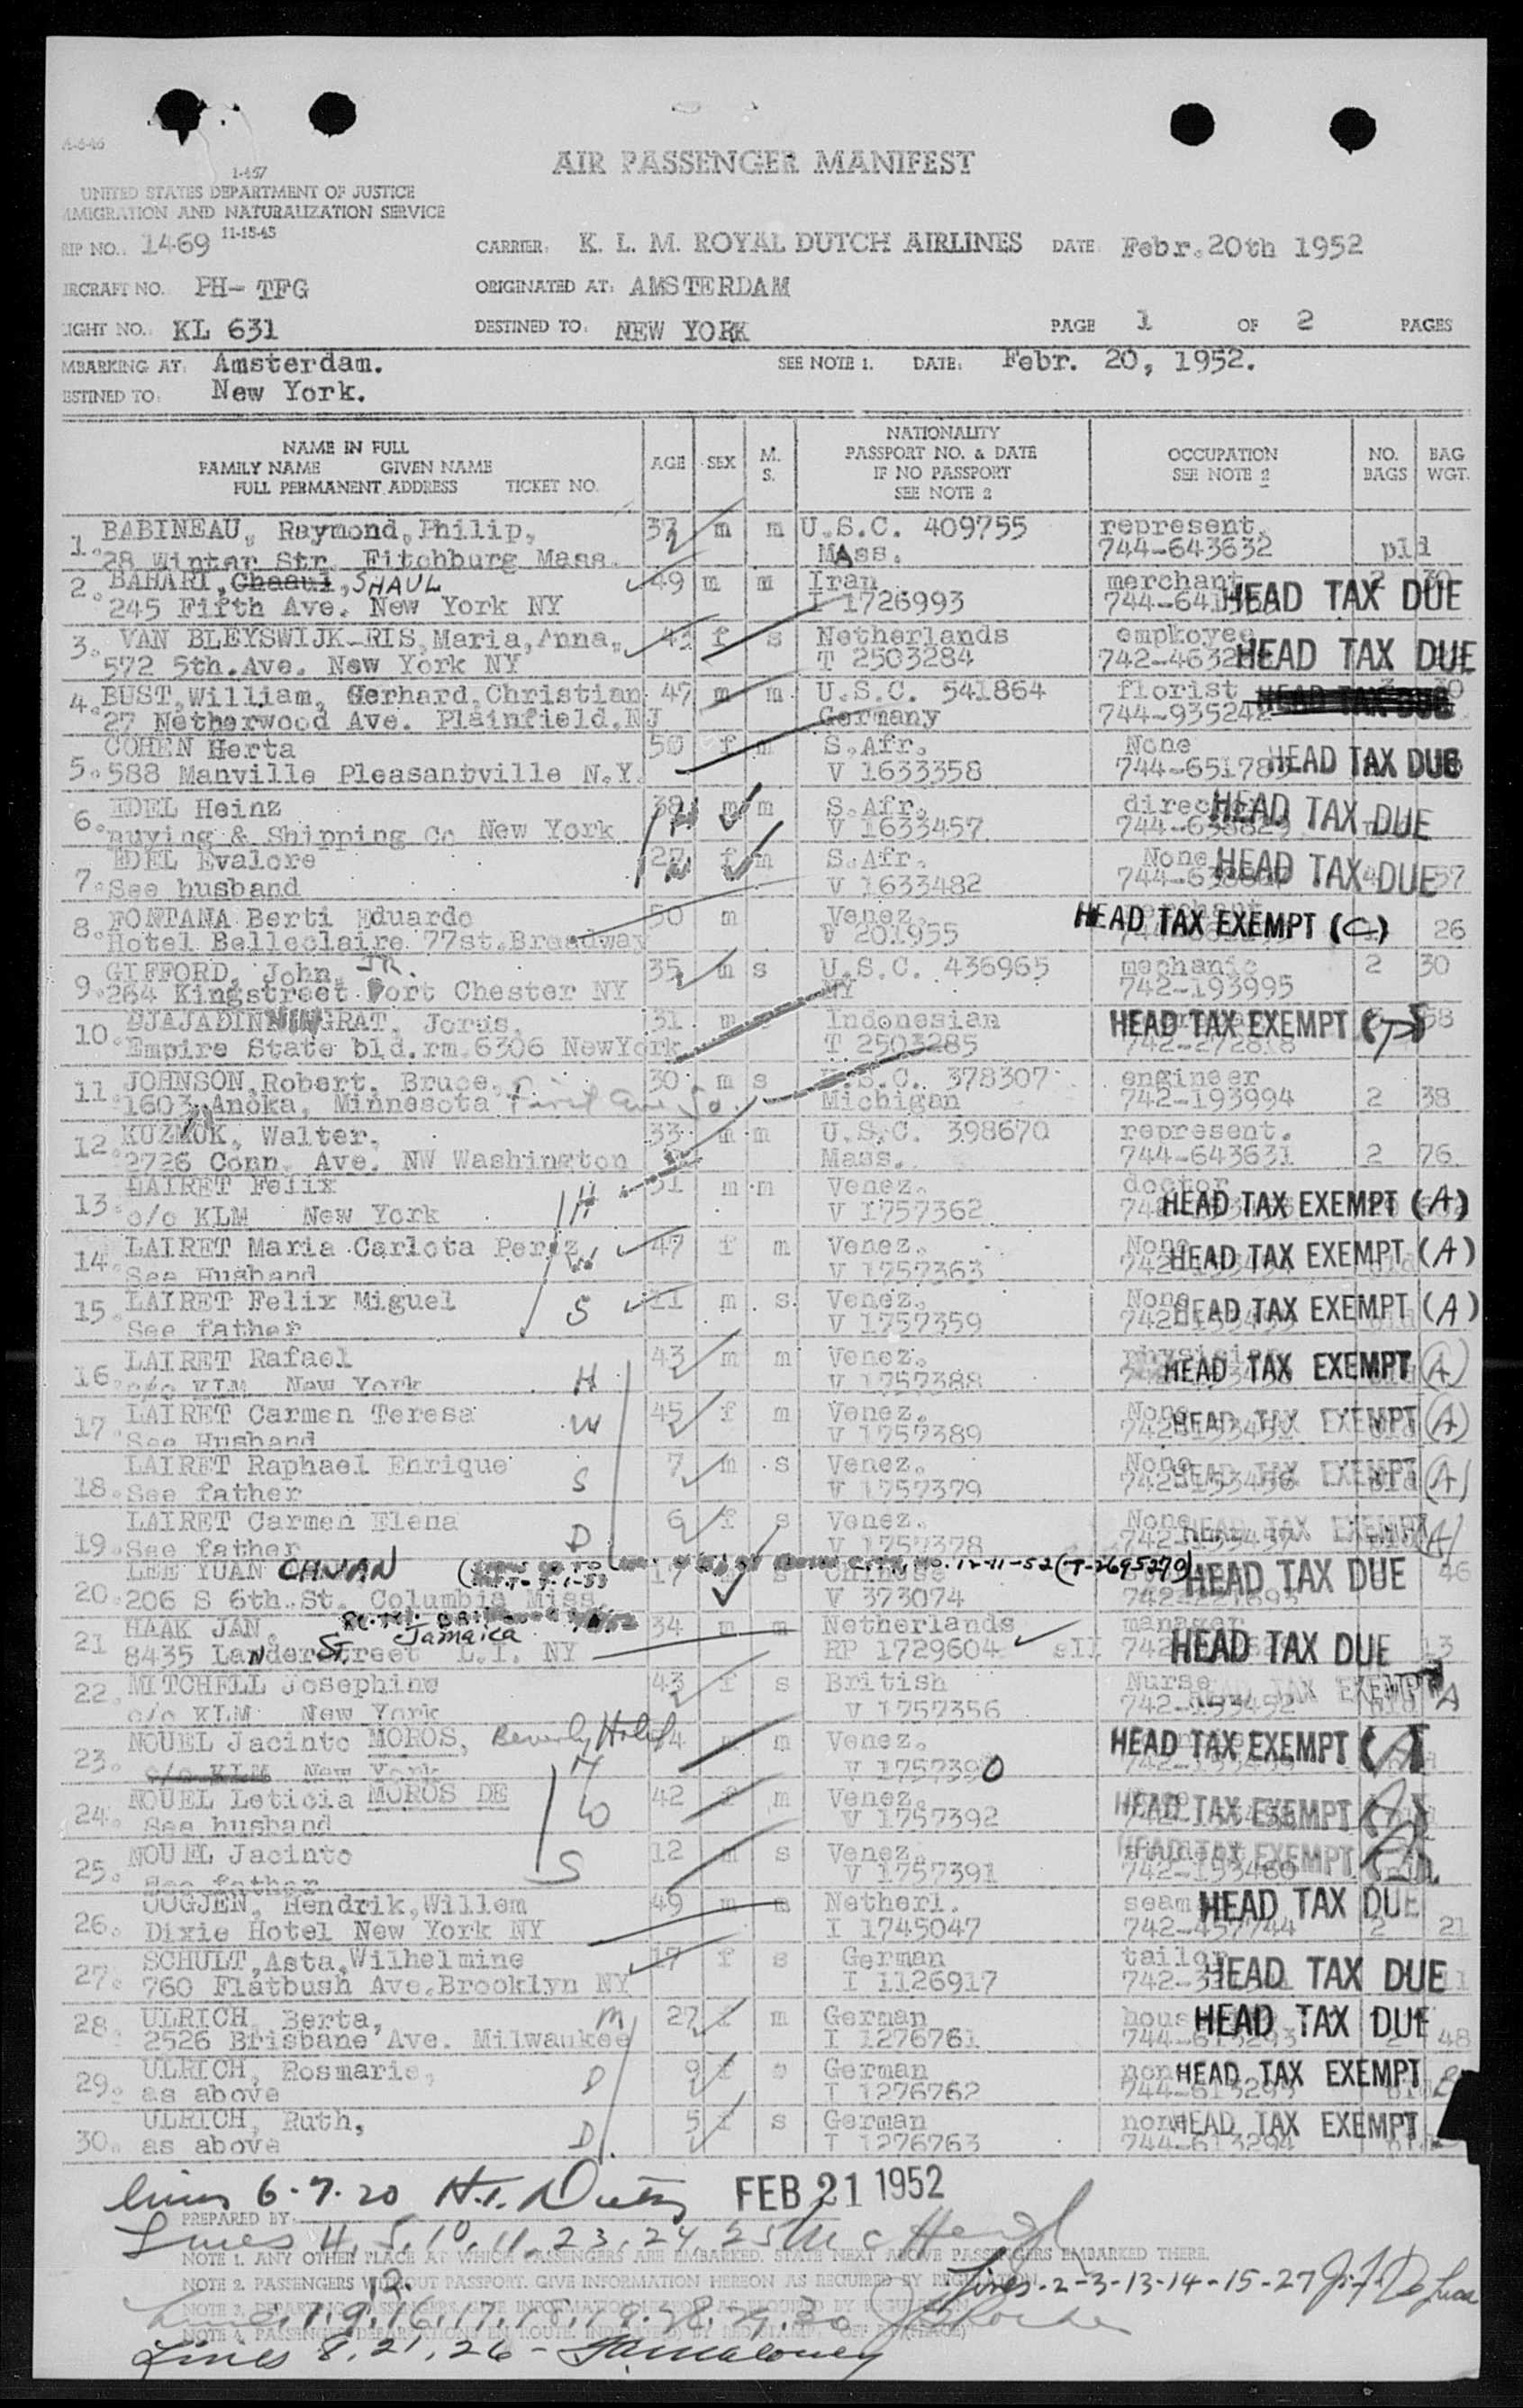 A-6-46
AIR PASSENGER MANIFEST
1-457
UNITED STATES DEPARTMENT OF JUSTICE
MMIGRATION AND NATURALIZATION SERVICE
RIP NO.: 1469 11-15-45 CARRIER: K. L. M. ROYAL DUTCH AIRLINES DATE: Febr.20th 1952
IRCRAFT NO. PH- TFG ORIGINATED AT: AMSTERDAM
IGHT NO.: KL 631 DESTINED TO: NEW YORK PAGE 1 OF 2 PAGES
MBARKING AT: Amsterdam. SEE NOTE 1. DATE: Febr. 20, 1952.
ESTINED TO: New York.
NAME IN FULL
FAMILY NAME GIVEN NAME
FULL PERMANENT ADDRESS TICKET NO.
AGE SEX M. S.
NATIONALITY
PASSPORT NO. & DATE
IF NO PASSPORT
SEE NOTE 2
OCCUPATION
SEE NOTE 2
NO. BAGS
BAG WGT.
1. BABINEAU, Raymond, Philip, 37 m m U.S.C. 409755 represent.
28 Winter Str. Fitchburg Mass. MAss. 744-643632
2. BAHARI, Ghaaul, SHAUL 49 m m Iran merchant 2
245 Fifth Ave. New York NY I 1726993 HEAD TAX DUE
3. VAN BLEYSWIJK-RIS, Maria, Anna, f s Netherlands empkoyee
572 5th.Ave. New York NY T 2503284 HEAD TAX DUE
4. BUST, William, Gerhard, Christian 47 m m U.S.C. 541864 florist
27 Netherwood Ave. Plainfield, NJ Germany 744-935242 HEAD TAX DUE
COHEN Herta 50 f m S.Afr. None
5. 588 Manville Pleasantville N.Y. V 1633358 HEAD TAX DUE
6. EDEL Heinz 38 m m S.Afr.
Buying & Shipping Co New York V 1633457 HEAD TAX DUE
EDEL Evalore 27 f m S.Afr. None
7. See husband V 1633482 HEAD TAX DUE 57
8. FONTANA Berti Eduardo 50 m Venez.
Hotel Belleclaire 77st.Broadway V 201955 HEAD TAX EXEMPT (C) 26
GIFFORD, John, JR. 35 m s U.S.C. 436965 mechanic 2 30
9. 264 Kingstreet Port Chester NY NY 742-193995
10. DJAJADININGRAT, Jorus, 31 m Indonesian HEAD TAX EXEMPT 58
Empire State bld.rm.6306 NewYork T 2503285
11. JOHNSON, Robert, Bruce, 30 m s U.S.C. 378307 engineer
1603 Anoka, Minnesota First Ave So. Michigan 742-193994 2 38
12. KUZMOK, Walter, 33 m m U.S.C. 398670 represent.
2726 Conn. Ave. NW Washington Mass. 744-643631 2 76
13. LAIRET Felix 51 m m Venez. doctor
c/o KLM New York H V 1757362 HEAD TAX EXEMPT (A)
14. LAIRET Maria Carlota Perez W 47 f m Venez. None
See Husband V 1757363 HEAD TAX EXEMPT (A)
15. LAIRET Felix Miguel S 11 m s Venez. None
See father V 1757359 HEAD TAX EXEMPT (A)
16. LAIRET Rafael 43 m m Venez. physician
c/o KLM New York H V 1757388 HEAD TAX EXEMPT (A)
17. LAIRET Carmen Teresa W 45 f m Venez. None
See Husband V 1757389 HEAD TAX EXEMPT (A)
LAIRET Raphael Enrique 7 m s Venez. None
18. See father S V 1757379 HEAD TAX EXEMPT (A)
LAIRET Carmen Elena 6 f s Venez. None
19. See father D V 1757378 HEAD TAX EXEMPT (A)
LEE YUAN CHUAN 17 s Chinese 12-11-52 (T-2695270) HEAD TAX DUE 46
20. 206 S 6th.St. Columbia Miss. V 373074
21 HAAK JAN, 34 m m Netherlands manager
8435 Lander street St. Jamaica L.I. NY RP 1729604 HEAD TAX DUE 13
22. MITCHELL Josephine 43 f s British Nurse
c/o KLM New York V 1757356 742-153452 HEAD TAX EXEMPT A
23. NOUEL Jacinto MOROS, Beverly Hotel m m Venez.
c/o KLM New York H V 1757390 HEAD TAX EXEMPT (A)
24. NOUEL Leticia MOROS DE W 42 f m Venez.
See husband V 1757392 HEAD TAX EXEMPT (A)
25. NOUEL Jacinto 12 m s Venez. student
See father S V 1757391 742-153460 HEAD TAX EXEMPT
26. OOGJEN, Hendrik, Willem 49 m m Netherl. seam
Dixie Hotel New York NY I 1745047 742-457744 HEAD TAX DUE 2 21
27. SCHULT, Asta, Wilhelmine 17 f s German tailor
760 Flatbush Ave. Brooklyn NY I 1126917 HEAD TAX DUE 11
28. ULRICH, Berta, M 27 f m German
2526 Brisbane Ave. Milwaukee I 1276761 744-613293 HEAD TAX DUE 2 48
29. ULRICH, Rosmarie, 9 f s German
as above D I 1276762 744-613295 HEAD TAX EXEMPT
ULRICH, Ruth, 5 f s German
30. as above D I 1276763 744-613294 HEAD TAX EXEMPT
lines 6-7-20 FEB 21 1952
PREPARED BY
Lines 4, 5, 10, 11, 23, 24, 25
NOTE 1. ANY OTHER PLACE AT WHICH PASSENGERS ARE EMBARKED. STATE NEXT ABOVE PASSENGERS EMBARKED THERE.
NOTE 2. PASSENGERS WITHOUT PASSPORT. GIVE INFORMATION HEREON AS REQUIRED BY REGULATION.
12.
Lines-2-3-13-14-15-27
Lines 1, 9, 16, 17, 18, 19, 28, 29, 30
Lines 8, 21, 26 -